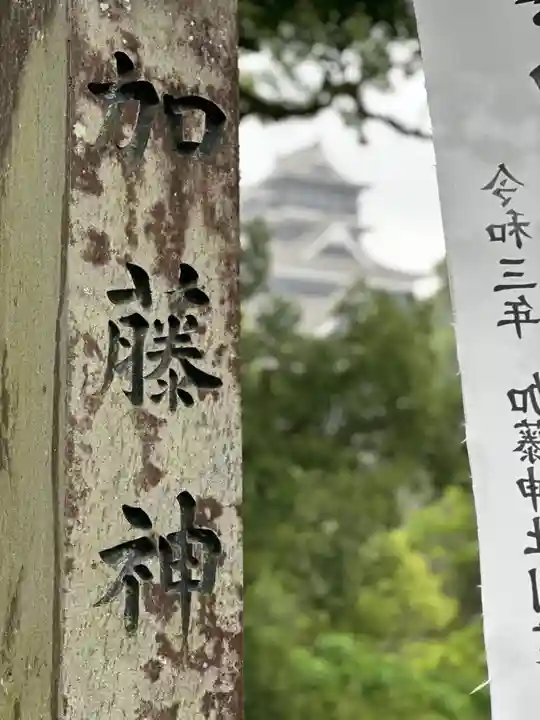 加藤神
令和三年
加藤神社